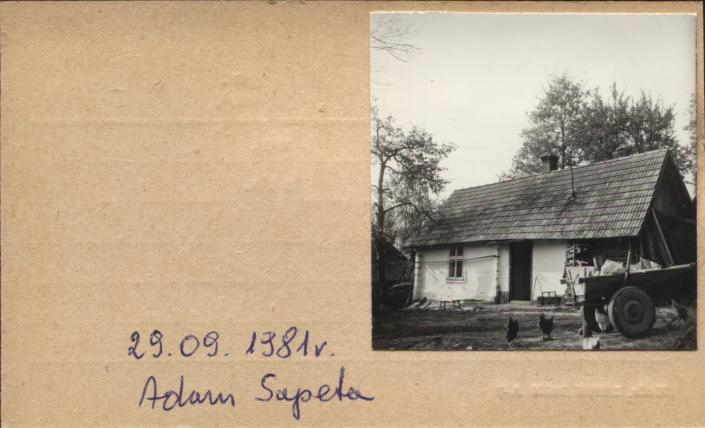 29.09.1981r.
Adam Sapeta